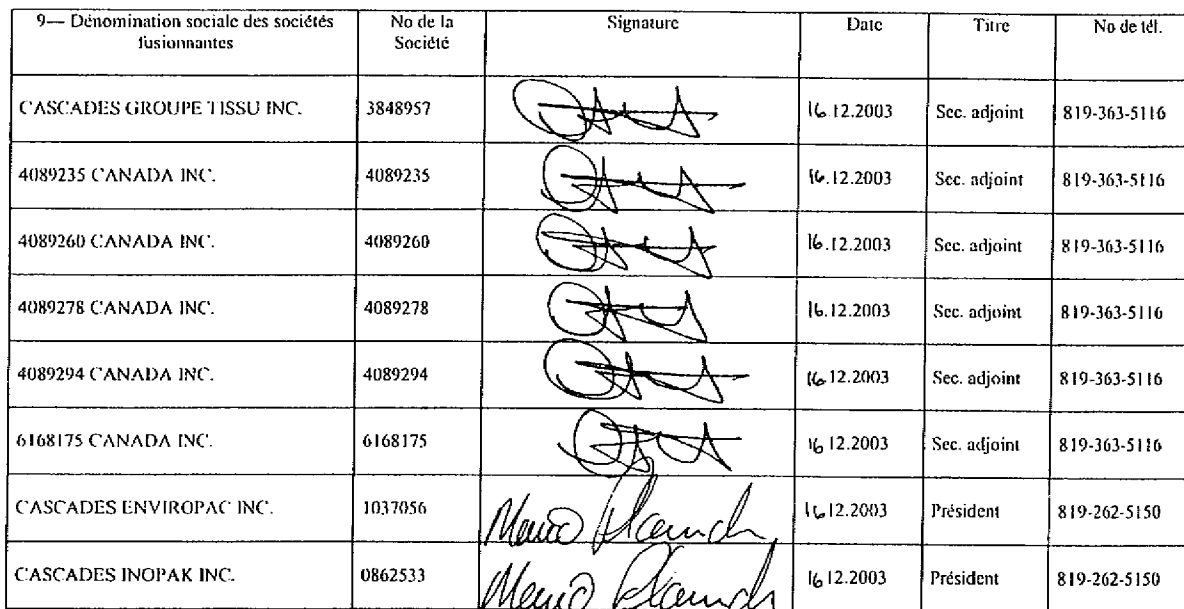 9— Dénomination sociale des sociétés fusionnantes | No de la Société | Signature | Date | Titre | No de tél.
CASCADES GROUPE TISSU INC. | 3848957 | 16.12.2003 | Sec. adjoint | 819-363-5116
4089235 CANADA INC. | 4089235 | 16.12.2003 | Sec. adjoint | 819-363-5116
4089260 CANADA INC. | 4089260 | 16.12.2003 | Sec. adjoint | 819-363-5116
4089278 CANADA INC. | 4089278 | 16.12.2003 | Sec. adjoint | 819-363-5116
4089294 CANADA INC. | 4089294 | 16.12.2003 | Sec. adjoint | 819-363-5116
6168175 CANADA INC. | 6168175 | 16 12.2003 | Sec. adjoint | 819-363-5116
CASCADES ENVIROPAC INC. | 1037056 | 16 12.2003 | Président | 819-262-5150
CASCADES INOPAK INC. | 0862533 | 16 12.2003 | Président | 819-262-5150